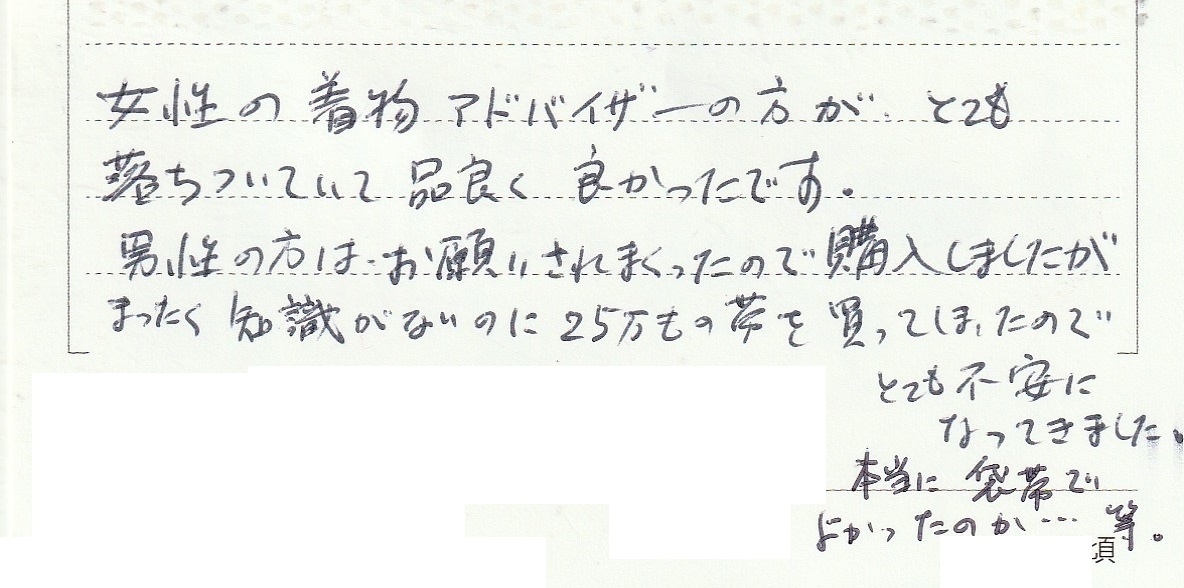 女性の着物アドバイザーの方が とても
落ちついていて品良く 良かったです。
男性の方は お願いされまくったので購入しましたが
まったく知識がないのに25万もの帯を買ってしまったので
とても不安に
なってきました。
本当に袋帯で
よかったのか… 等。
項